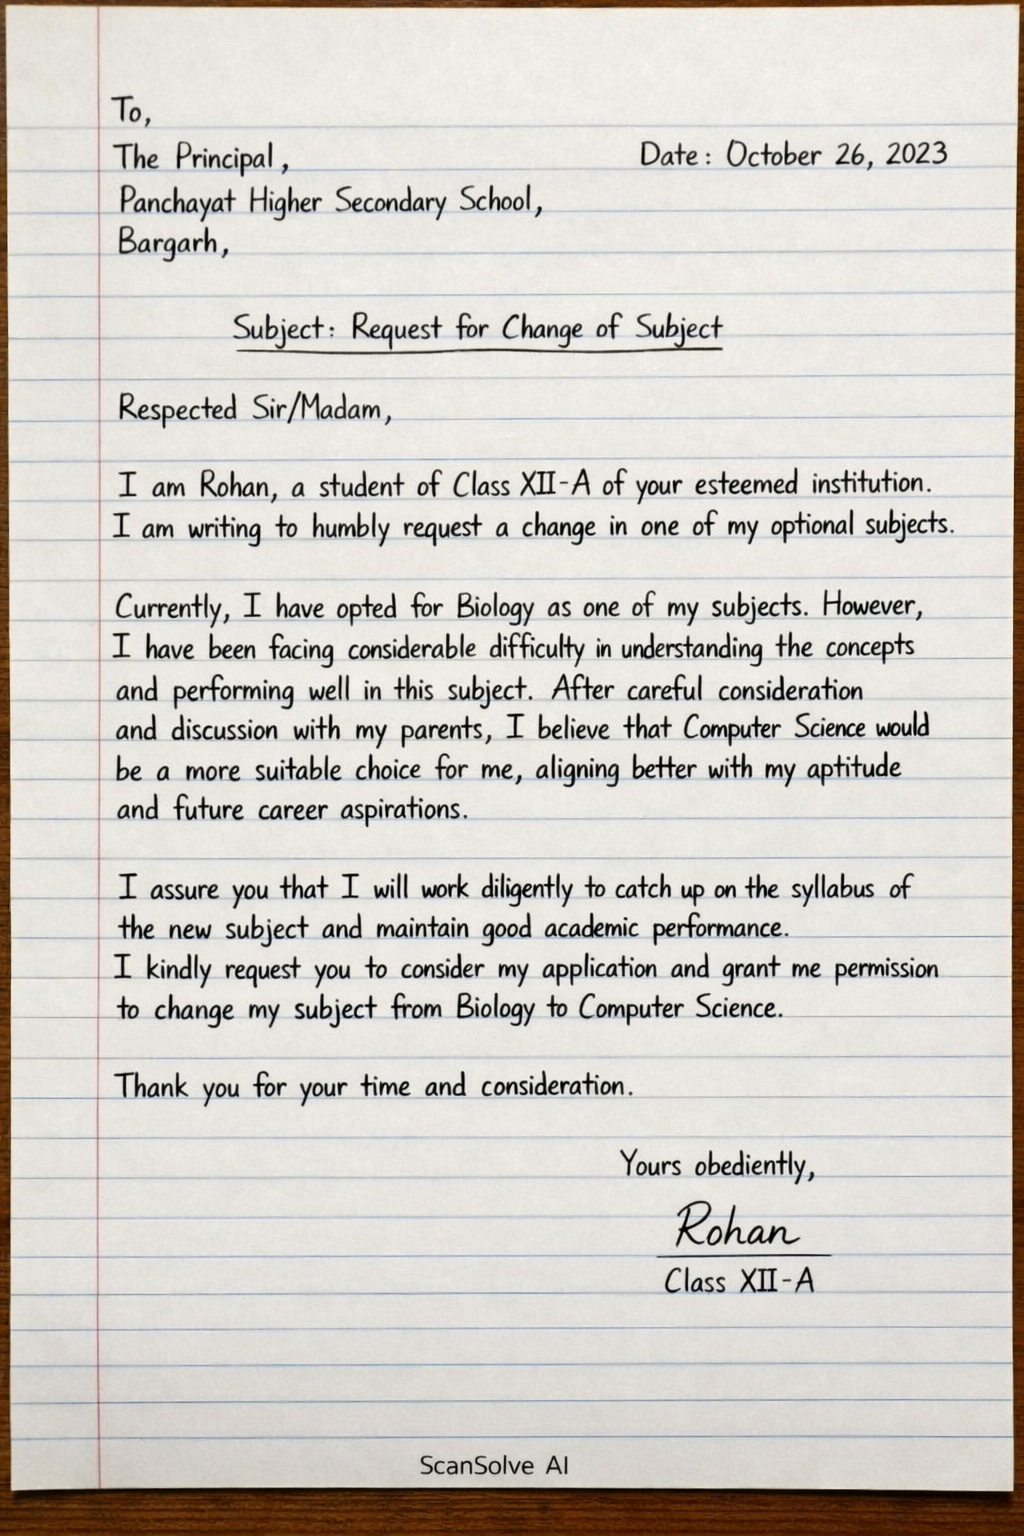 To,
The Principal,
Date: October 26, 2023
Panchayat Higher Secondary School,
Bargarh,
Subject: Request for Change of Subject
Respected Sir/Madam,
I am Rohan, a student of Class XII-A of your esteemed institution.
I am writing to humbly request a change in one of my optional subjects.
Currently, I have opted for Biology as one of my subjects. However,
I have been facing considerable difficulty in understanding the concepts
and performing well in this subject. After careful consideration
and discussion with my parents, I believe that Computer Science would
be a more suitable choice for me, aligning better with my aptitude
and future career aspirations.
I assure you that I will work diligently to catch up on the syllabus of
the new subject and maintain good academic performance.
I kindly request you to consider my application and grant me permission
to change my subject from Biology to Computer Science.
Thank you for your time and consideration.
Yours obediently,
Rohan
Class XII-A
ScanSolve AI